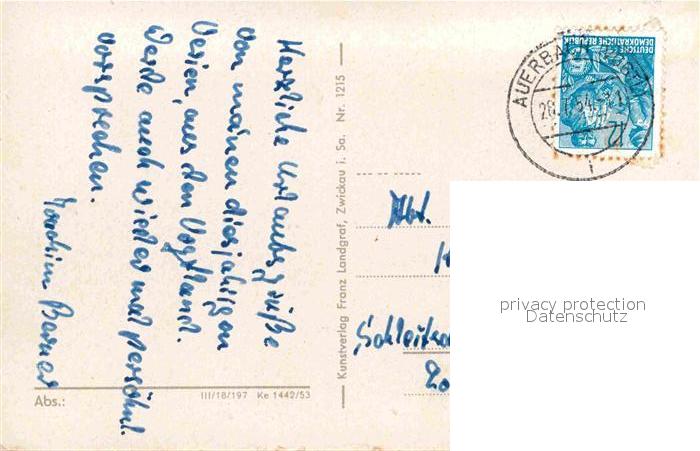 Herzliche Urlaubsgrüße
von meinen diesjährigen
Ferien, aus dem Vogtland.
Werde auch wieder mal persönl.
vorsprechen.
Joachim Berner
Abs.:
III/18/197 Ke 1442/53
Kunstverlag Franz Landgraf, Zwickau i. Sa. Nr. 1215
DEUTSCHE
DEMOKRATISCHE REPUBLIK
12
AUERBACH
Abt.
privacy protection
Datenschutz